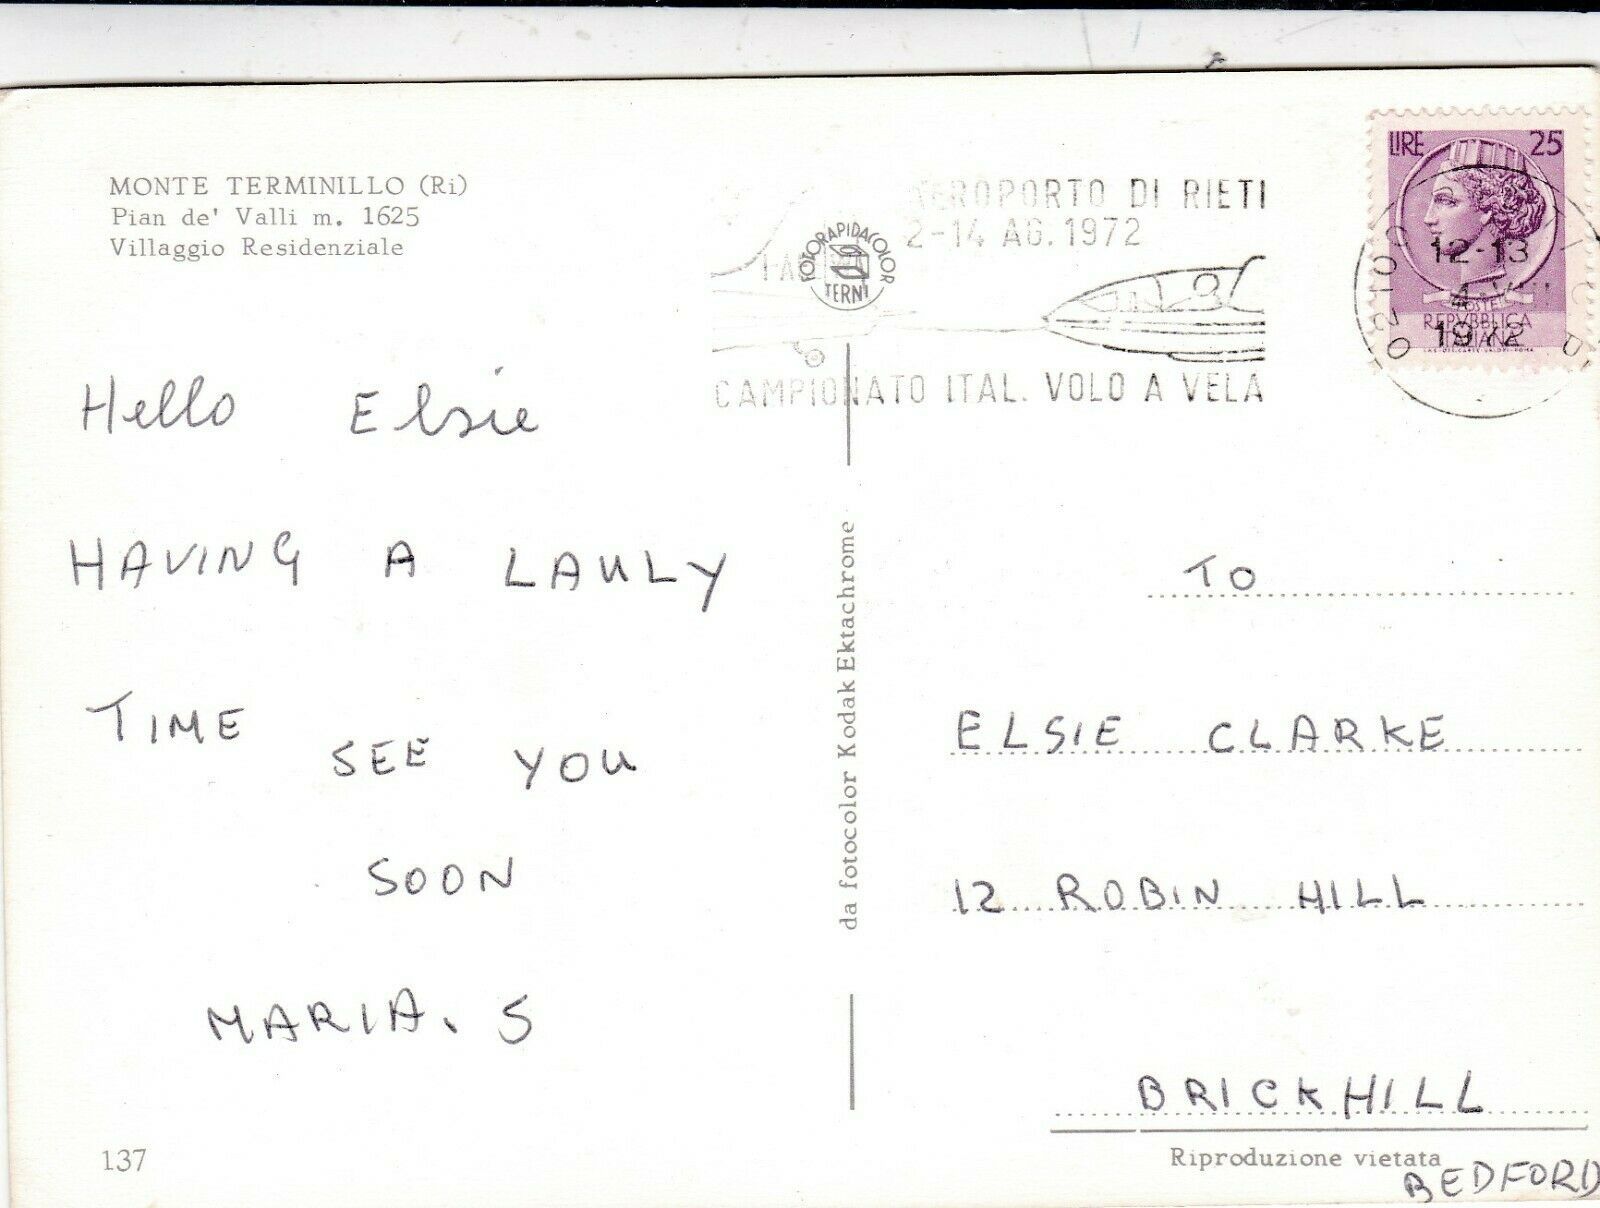 MONTE TERMINILLO (Ri)
Pian de' Valli m. 1625
Villaggio Residenziale
AEROPORTO DI RIETI
2-14 AG. 1972
CAMPIONATO ITAL. VOLO A VELA
FOTORAPIDACOLOR
TERNI
LIRE 25
12-13
4
1972
POSTE
REPVBBLICA
ITALIANA
Hello Elsie
HAVING A LAULY
TIME SEE YOU
SOON
MARIA. S
da fotocolor Kodak Ektachrome
TO
ELSIE CLARKE
12 ROBIN HILL
BRICKHILL
BEDFORD
137
Riproduzione vietata